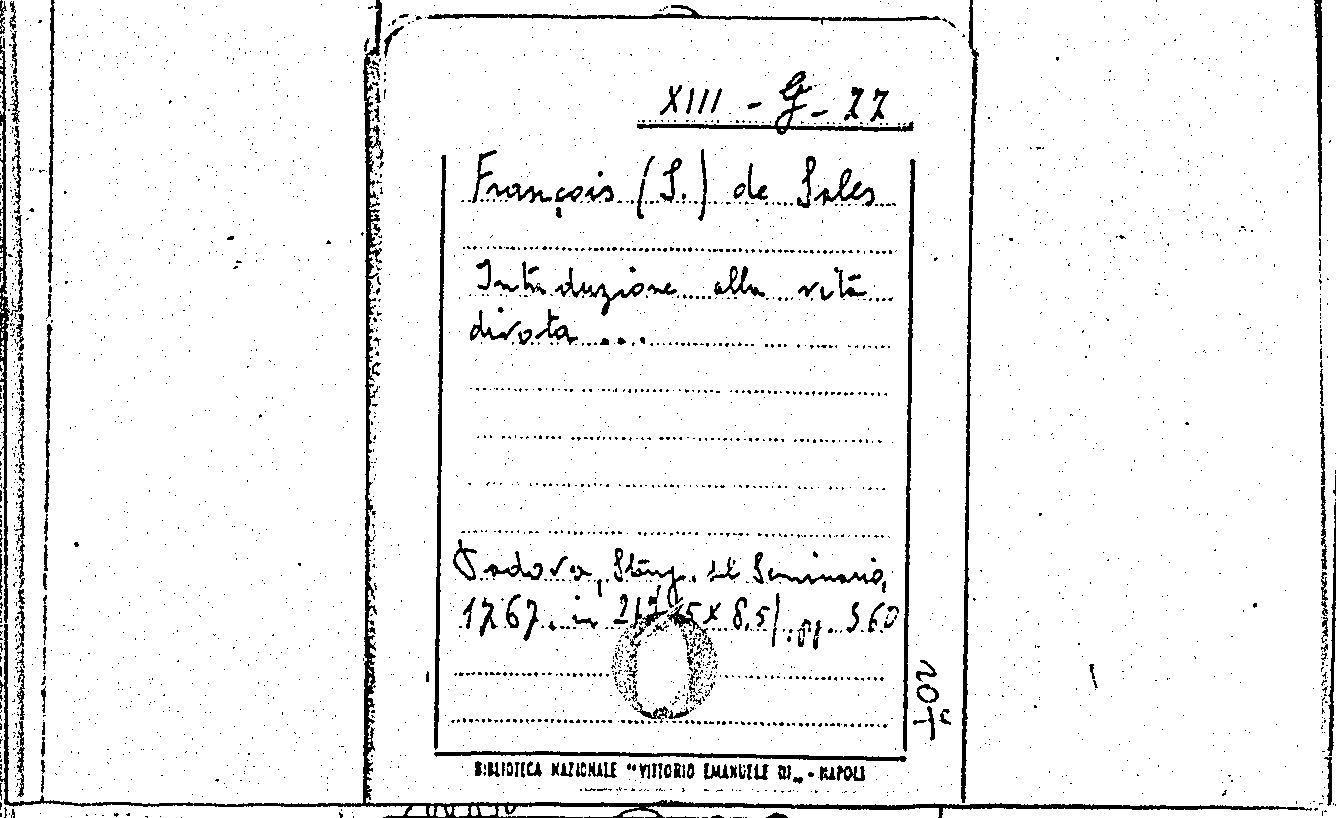 XIII - G - 22
François (S.) de Sales
Introduzione alla vita
divota ...
Padova, Stamp. del Seminario,
1767. in x 8,5) . pp. 360
BIBLIOTECA NAZIONALE "VITTORIO EMANUELE III„ - NAPOLI